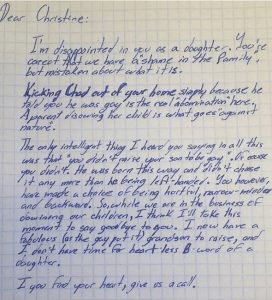 Dear Christine:
I'm disappointed in you as a daughter. You're
correct that we have a "shame in the family",
but mistaken about what it is.
Kicking Chad out of your home simply because he
told you he was gay is the real "abomination" here.
A parent disowning her child is what goes "against
nature".
The only intelligent thing I heard you saying in all this
was that "you didn't raise your son to be gay". Of course
you didn't. He was born this way and didn't choose
it any more than he being left-handed. You however,
have made a choice of being hurtful, narrow-minded
and backward. So, while we are in the business of
disowning our children, I think I'll take this
moment to say goodbye to you. I now have a
fabulous (as the gays put it) grandson to raise, and
I don't have time for heart less B-word of a
daughter.
If you find your heart, give us a call.